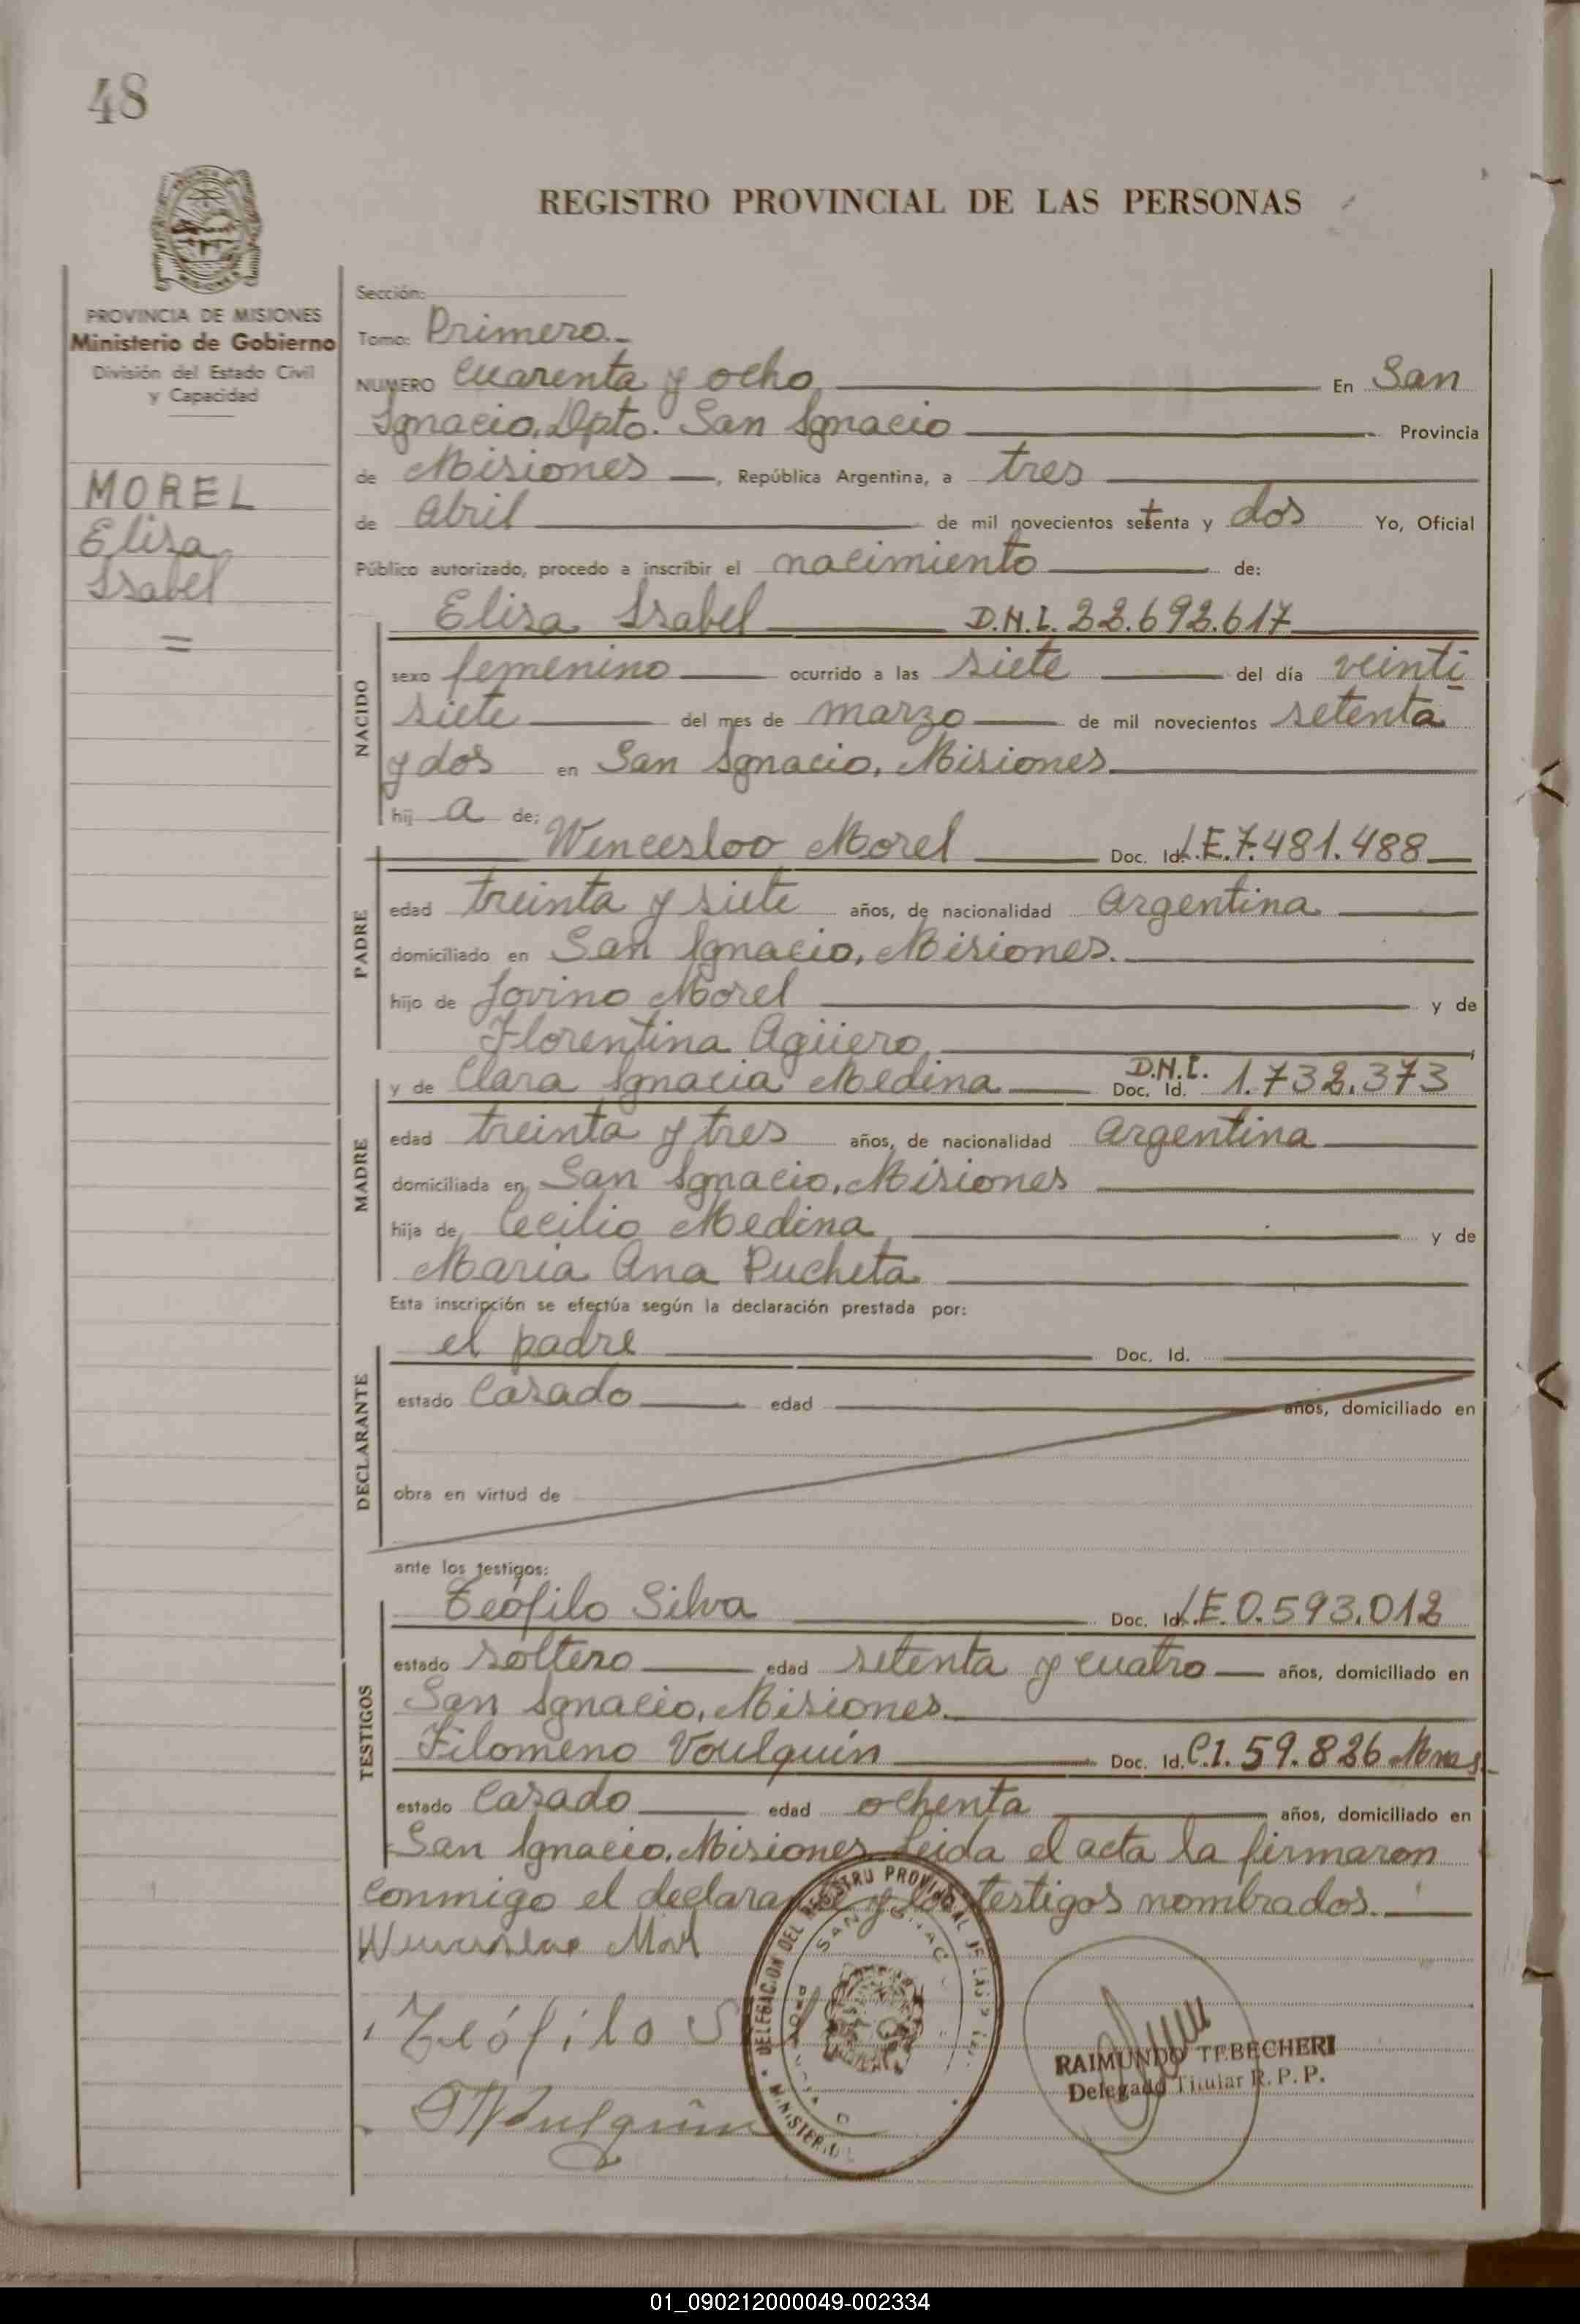 48
REGISTRO PROVINCIAL DE LAS PERSONAS
PROVINCIA DE MISIONES
Ministerio de Gobierno
División del Estado Civil
y Capacidad
MOREL
Elisa
Isabel
=
Sección:
Tomo: Primero.-
NUMERO Cuarenta y ocho En San
Ignacio, Dpto. San Ignacio Provincia
de Misiones, República Argentina, a tres
de Abril de mil novecientos setenta y dos Yo, Oficial
Público autorizado, procedo a inscribir el nacimiento de:
Elisa Isabel D.N.I. 22.692.617
NACIDO
sexo femenino ocurrido a las siete del día veinti
siete del mes de marzo de mil novecientos setenta
y dos en San Ignacio, Misiones.
hij a de:
Wenceslao Morel Doc. Id. L.E. 7.481.488
PADRE
edad treinta y siete años, de nacionalidad Argentina
domiciliado en San Ignacio, Misiones.
hijo de Jovino Morel y de
Florentina Agüero
y de Clara Ignacia Medina D.N.I. Doc. Id. 1.732.373
MADRE
edad treinta y tres años, de nacionalidad Argentina
domiciliada en San Ignacio, Misiones
hija de Cecilio Medina y de
Maria Ana Pucheta
Esta inscripción se efectúa según la declaración prestada por:
el padre Doc. Id.
DECLARANTE
estado Casado edad años, domiciliado en
obra en virtud de
ante los testigos:
Teófilo Silva Doc. Id. L.E. 0.593.012
TESTIGOS
estado soltero edad setenta y cuatro años, domiciliado en
San Ignacio, Misiones.
Filomeno Voulquin Doc. Id. C.I. 59.826 Mnes.
estado Casado edad ochenta años, domiciliado en
San Ignacio, Misiones Leida el acta la firmaron
conmigo el declarante y los testigos nombrados.
Teófilo S
DELEGACION DEL REGISTRO PROVINCIAL DE LAS
SAN IGNACIO
MINISTERIO
RAIMUNDO TEBECHERI
Delegado Titular R. P. P.
01_090212000049-002334